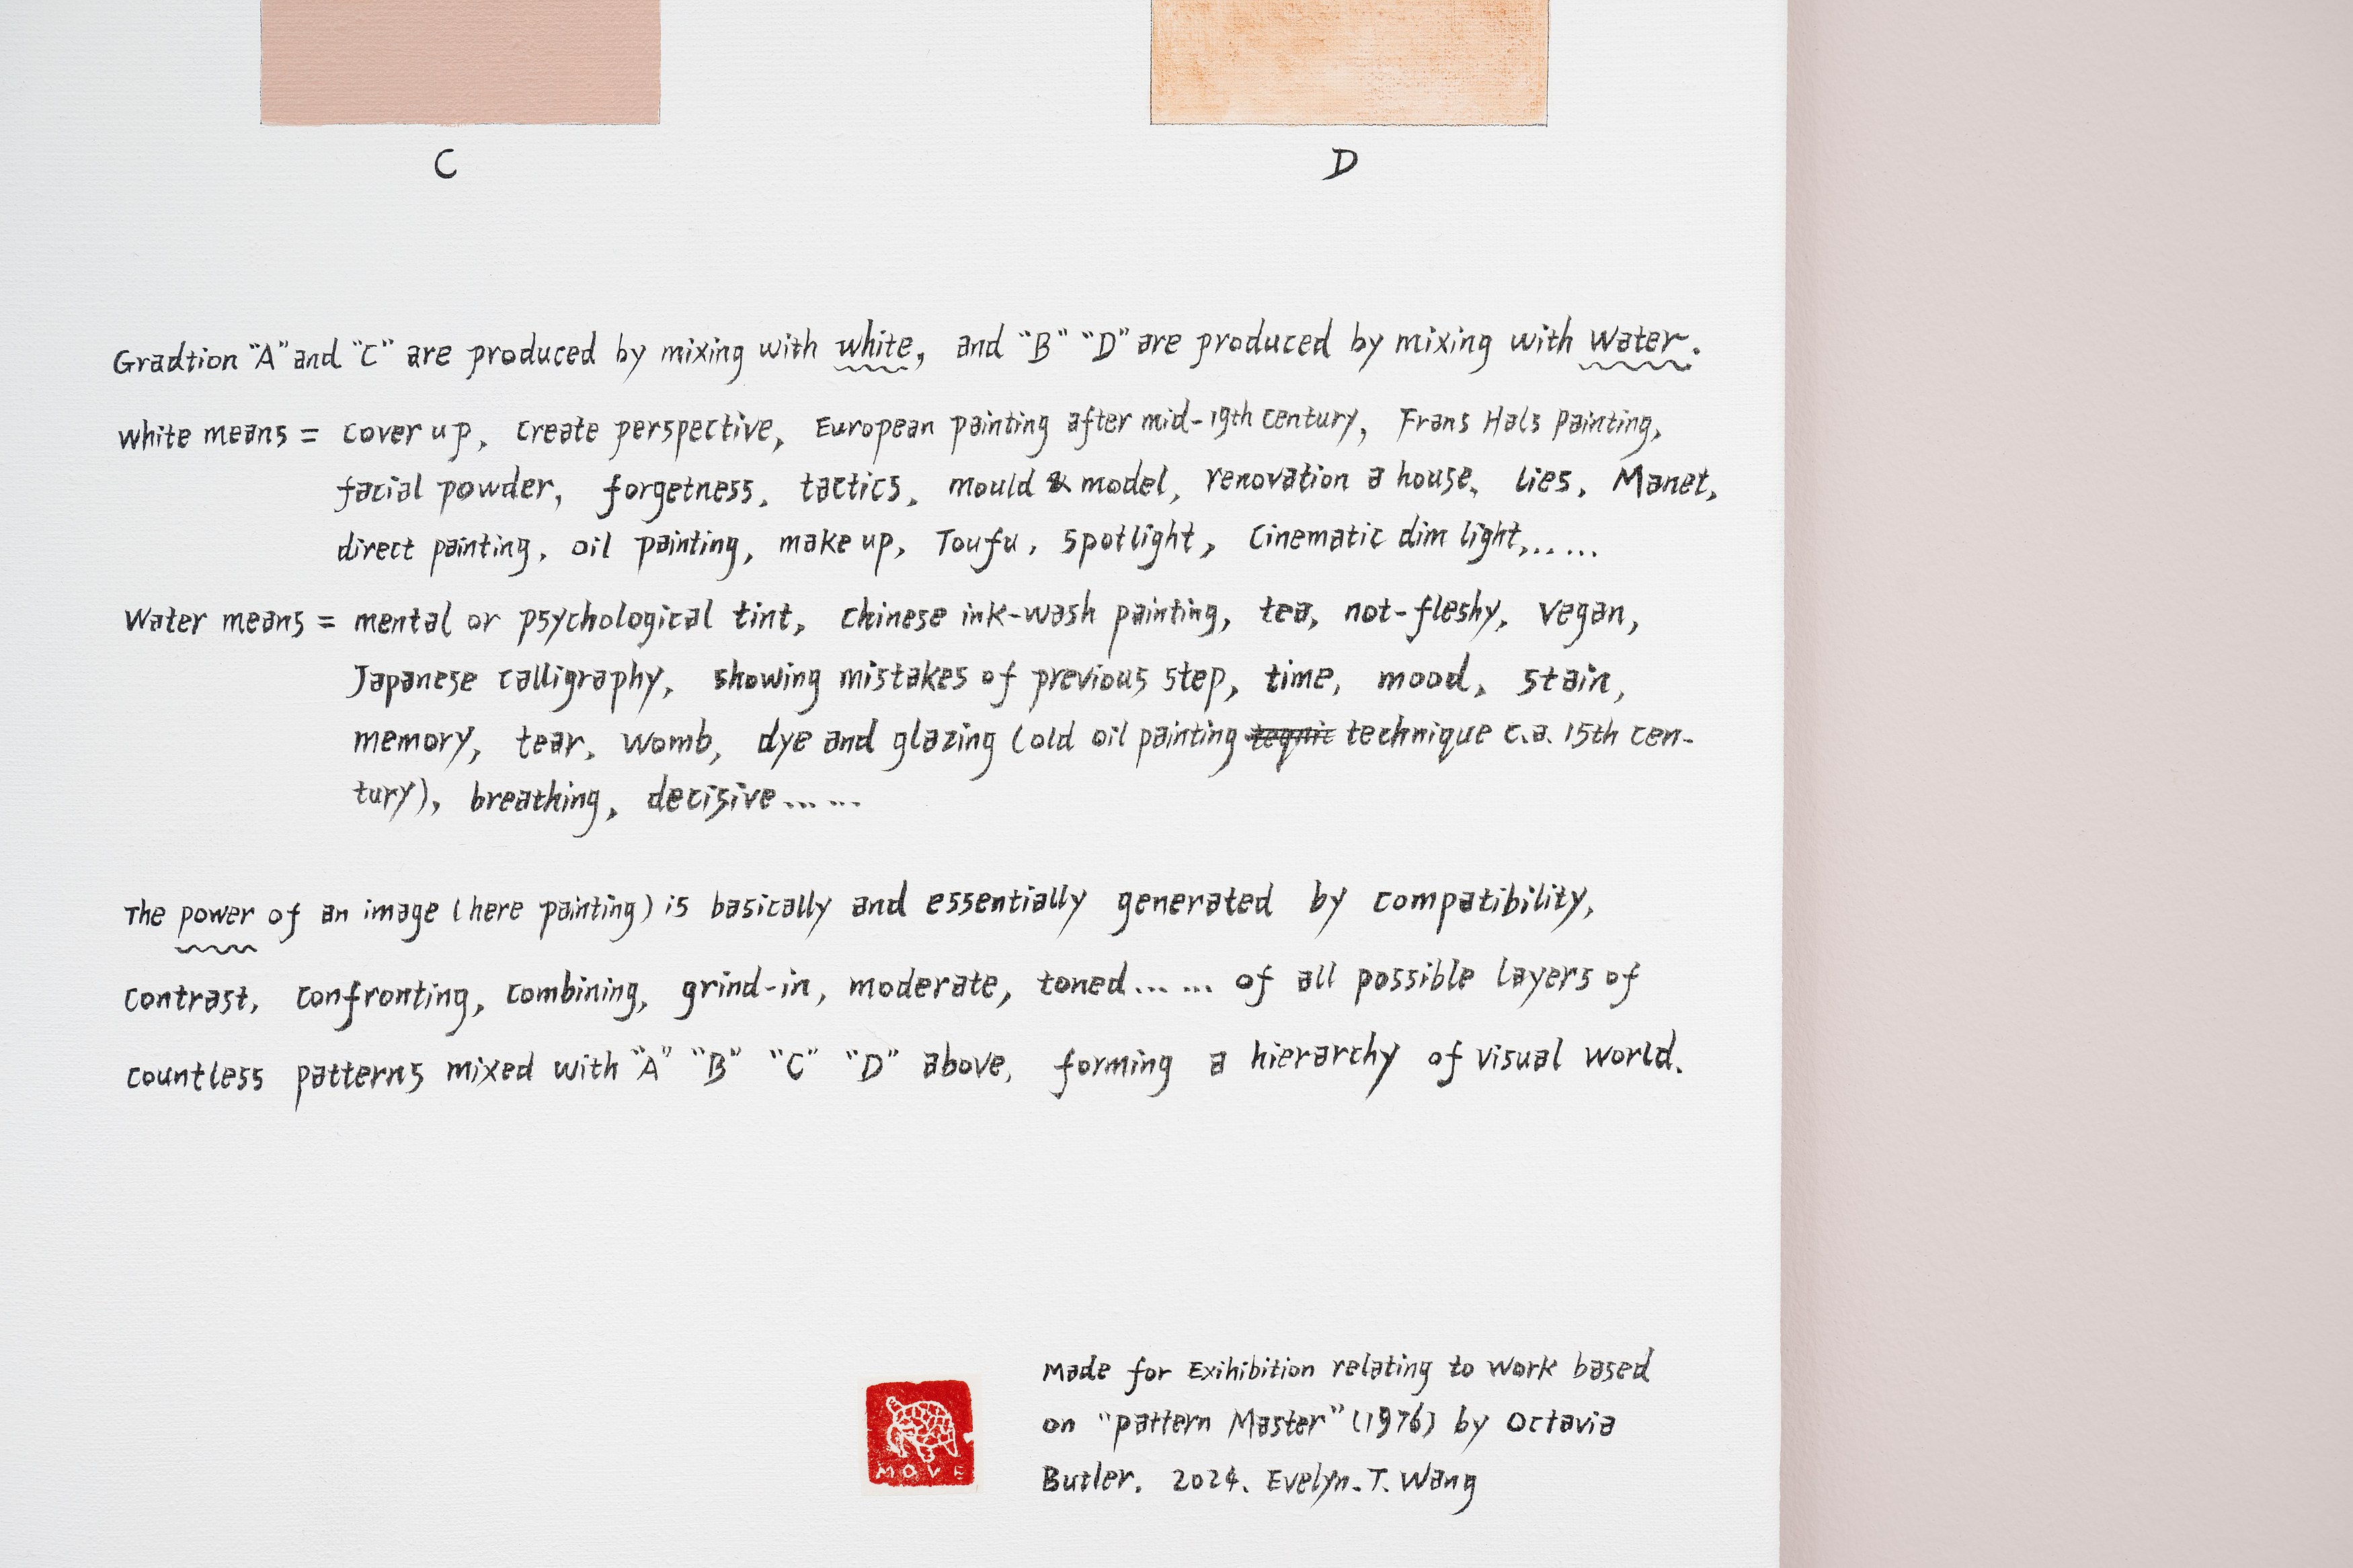 C
D
Gradtion "A" and "C" are produced by mixing with white, and "B" "D" are produced by mixing with water.
white means = cover up, create perspective, European painting after mid-19th century, Frans Hals painting,
facial powder, forgetness, tactics, mould & model, renovation a house, lies, Manet,
direct painting, oil painting, make up, Toufu, spotlight, Cinematic dim light,.....
Water means = mental or psychological tint, Chinese ink-wash painting, tea, not-fleshy, vegan,
Japanese calligraphy, showing mistakes of previous step, time, mood, stain,
memory, tear, womb, dye and glazing (old oil painting teqnic technique c.a. 15th cen-
tury), breathing, decisive... ...
The power of an image (here painting) is basically and essentially generated by compatibility,
contrast, confronting, combining, grind-in, moderate, toned... ... of all possible layers of
countless patterns mixed with "A" "B" "C" "D" above, forming a hierarchy of visual world.
Made for Exihibition relating to work based
on "pattern Master" (1976) by Octavia
Butler. 2024. Evelyn.T.Wang
MOVE